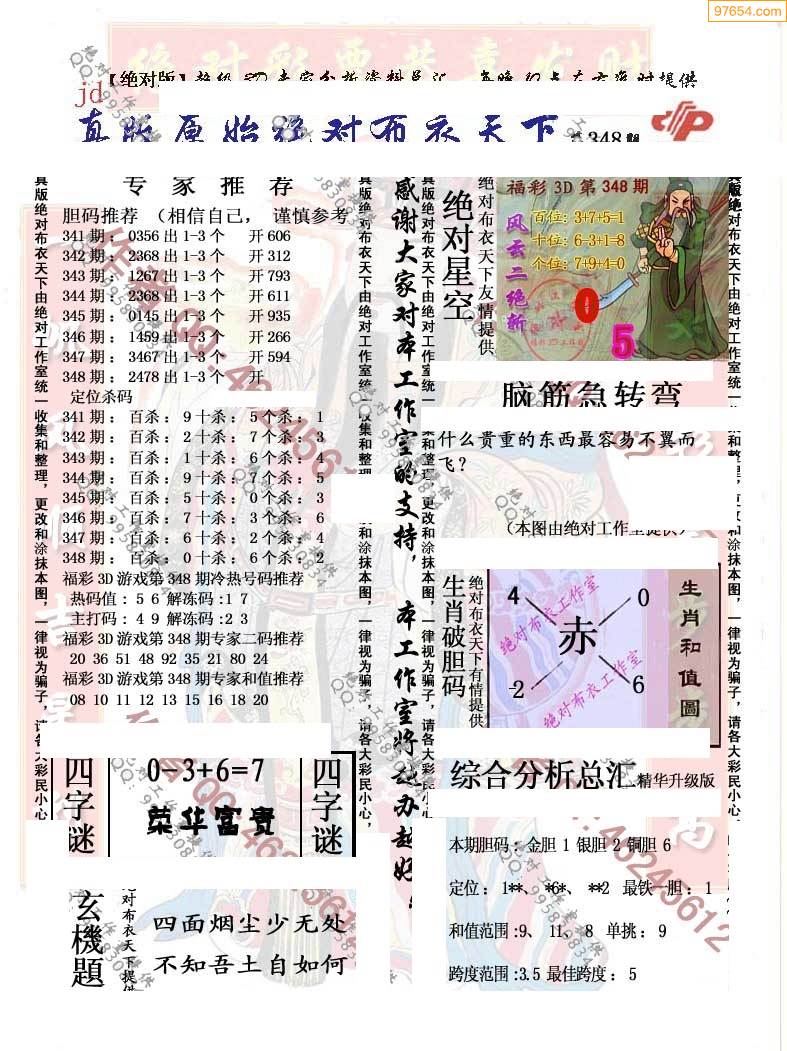 97654.com
【绝对版】
jd
真版原始绝对布衣天下
第348期
专家推荐
胆码推荐 （相信自己， 谨慎参考
341期： 0356出1-3个 开606
342期： 2368出1-3个 开312
343期： 1267出1-3个 开793
344期： 2368出1-3个 开611
345期： 0145出1-3个 开935
346期： 1459出1-3个 开266
347期： 3467出1-3个 开594
348期： 2478出1-3个 开
定位杀码
341期： 百杀：9十杀：5个杀：1
342期： 百杀：2十杀：7个杀：3
343期： 百杀：1十杀：6个杀：4
344期： 百杀：9十杀：7个杀：5
345期： 百杀：5十杀：0个杀：3
346期： 百杀：7十杀：3个杀：6
347期： 百杀：6十杀：2个杀：4
348期： 百杀：0十杀：6个杀：2
福彩3D游戏第348期冷热号码推荐
热码值：5 6 解冻码:1 7
主打码：4 9 解冻码:2 3
福彩3D游戏第348期专家二码推荐
20 36 51 48 92 35 21 80 24
福彩3D游戏第348期专家和值推荐
08 10 11 12 13 15 16 18 20
四字谜
0-3+6=7
荣华富贵
四字谜
玄機題
绝对布衣天下提供
四面烟尘少无处
不知吾土自如何
真版绝对布衣天下由绝对工作室统一收集和整理，更改和涂抹本图，一律视为骗子，请各大彩民小心，
真版绝对布衣天下由绝对工作室统一收集和整理
和涂抹本图，一律视为骗子，请各大彩民小心，
感谢大家对本工作室的支持，本工作室将越办越好
真版绝对布衣天下由绝对工作室统一
和整理，更改和涂抹本图，一律视为骗子，请各大彩民小心，
绝对星空
绝对布衣天下友情提供
福彩3D第348期
风云二绝斩
百位：3+7+5=1
十位：6-3+1=8
个位：7+9+4=0
0
5
脑筋急转弯
什么贵重的东西最容易不翼而
飞？
（本图由绝对工作室提供）
生肖破胆码
绝对布衣天下有情提供
4
0
赤
2
6
绝对布衣工作室
绝对布衣工作室
生肖和值圖
综合分析总汇 精华升级版
本期胆码：金胆 1 银胆 2 铜胆 6
定位：1**、 *6*、 **2 最铁一胆：1
和值范围:9、 11、 8 单挑：9
跨度范围:3.5 最佳跨度：5
真版绝对布衣天下由绝对工作室统一
和涂抹本图，一律视为骗子，请各大彩民小心，